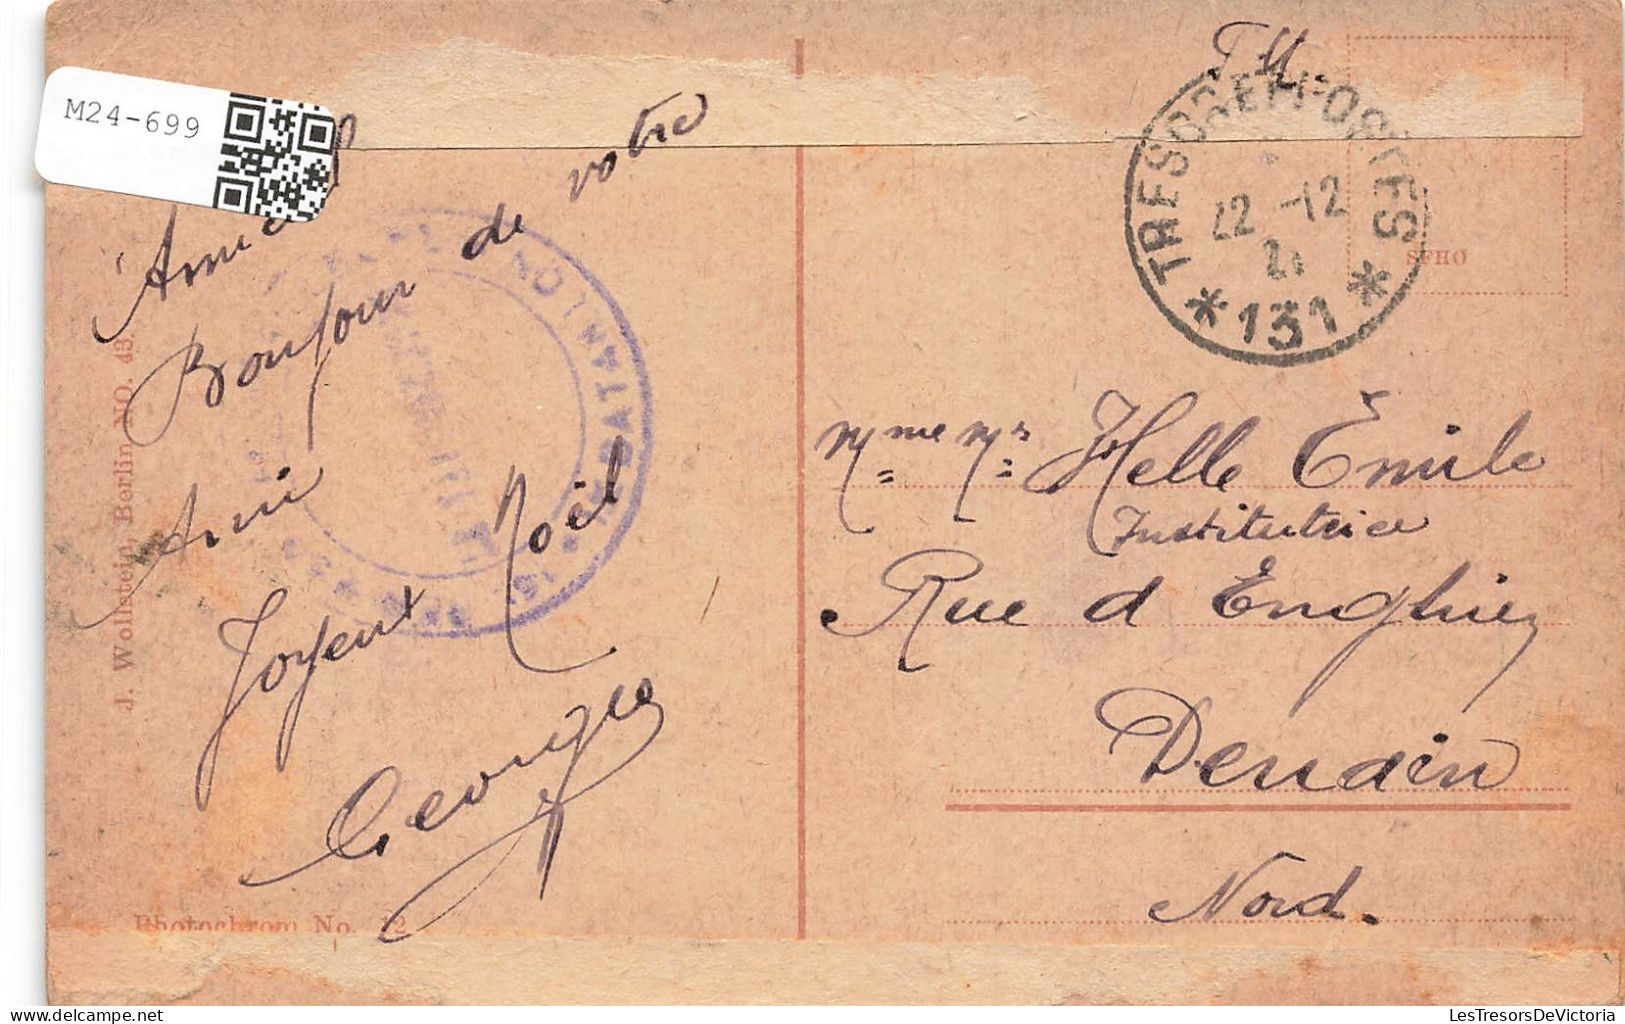 M24-699
Amical
Bonjour de votre
Ami
Joyeux Noël
Georges
J. Wollstein, Berlin NO. 43.
Photochrom No. 12
F.M.
TRESOR ET POSTES
22 -12
21
* 131 *
SFHO
BATAILLON
Mme Mr Helle Émile
Institutrice
Rue d Enghien
Denain
Nord.
LesTresorsDeVictoria
delcampe.net